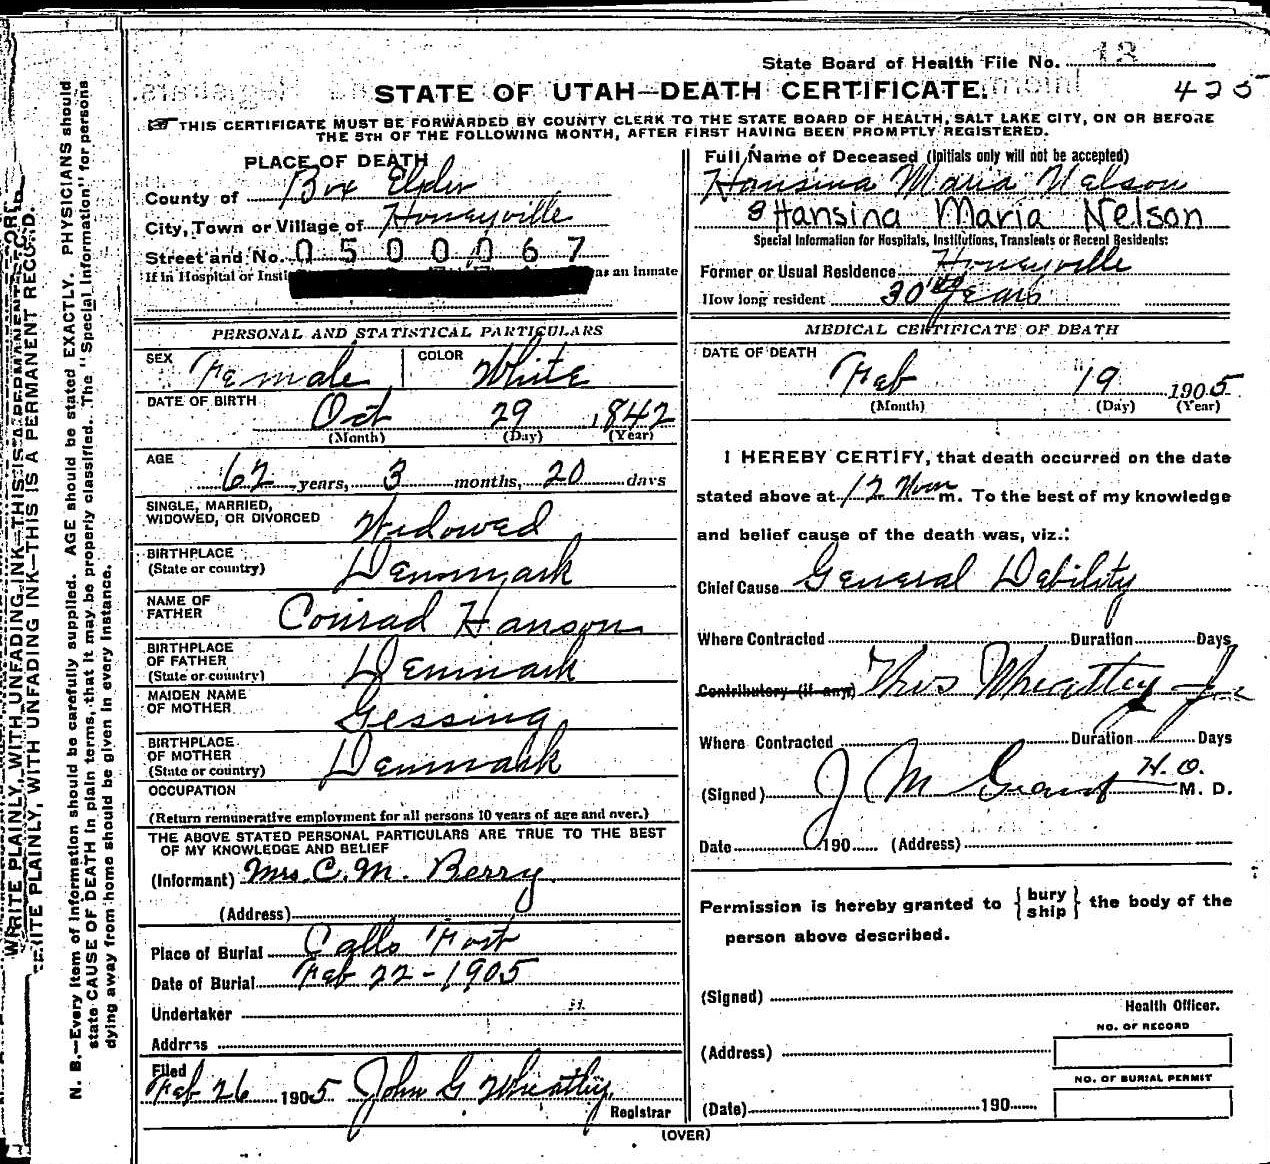 State Board of Health File No. 13
STATE OF UTAH—DEATH CERTIFICATE. 425
THIS CERTIFICATE MUST BE FORWARDED BY COUNTY CLERK TO THE STATE BOARD OF HEALTH, SALT LAKE CITY, ON OR BEFORE
THE 5TH OF THE FOLLOWING MONTH, AFTER FIRST HAVING BEEN PROMPTLY REGISTERED.
PLACE OF DEATH
County of Box Elder
City, Town or Village of Honeyville
Street and No. 0500067
If in Hospital or as an Inmate
PERSONAL AND STATISTICAL PARTICULARS
SEX Female COLOR White
DATE OF BIRTH Oct 29 1842
(Month) (Day) (Year)
AGE 62 years, 3 months, 20 days
SINGLE, MARRIED,
WIDOWED, OR DIVORCED Widowed
BIRTHPLACE
(State or country) Denmark
NAME OF
FATHER Conrad Hanson
BIRTHPLACE
OF FATHER
(State or country) Denmark
MAIDEN NAME
OF MOTHER Gessing
BIRTHPLACE
OF MOTHER
(State or country) Denmark
OCCUPATION
(Return remunerative employment for all persons 10 years of age and over.)
THE ABOVE STATED PERSONAL PARTICULARS ARE TRUE TO THE BEST
OF MY KNOWLEDGE AND BELIEF
(Informant) Mrs. C. M. Berry
(Address)
Place of Burial Calls Fort
Date of Burial Feb 22-1905
Undertaker
Address
Filed
Feb 26 1905 John G Wheatley
Registrar
Full Name of Deceased (Initials only will not be accepted)
Hansina Maria Nelson
Hansina Maria Nelson
Special Information for Hospitals, Institutions, Transients or Recent Residents:
Former or Usual Residence Honeyville
How long resident 30 years
MEDICAL CERTIFICATE OF DEATH
DATE OF DEATH
Feb 19 1905
(Month) (Day) (Year)
I HEREBY CERTIFY, that death occurred on the date
stated above at 12 Noon m. To the best of my knowledge
and belief cause of the death was, viz.:
Chief Cause General Debility
Where Contracted Duration Days
Contributory (if any) Thos Wheatley Jr
Where Contracted Duration Days
(Signed) J M Grant H.O. M. D.
Date 190 (Address)
Permission is hereby granted to {bury
ship} the body of the
person above described.
(Signed)
Health Officer.
NO. OF RECORD
(Address)
NO. OF BURIAL PERMIT
(Date) 190
(OVER)
WRITE PLAINLY, WITH UNFADING INK—THIS IS A PERMANENT RECORD.
WRITE PLAINLY, WITH UNFADING INK—THIS IS A PERMANENT RECORD.
N. B.—Every item of information should be carefully supplied. AGE should be stated EXACTLY. PHYSICIANS should
state CAUSE OF DEATH in plain terms, that it may be properly classified. The "Special Information" for persons
dying away from home should be given in every instance.